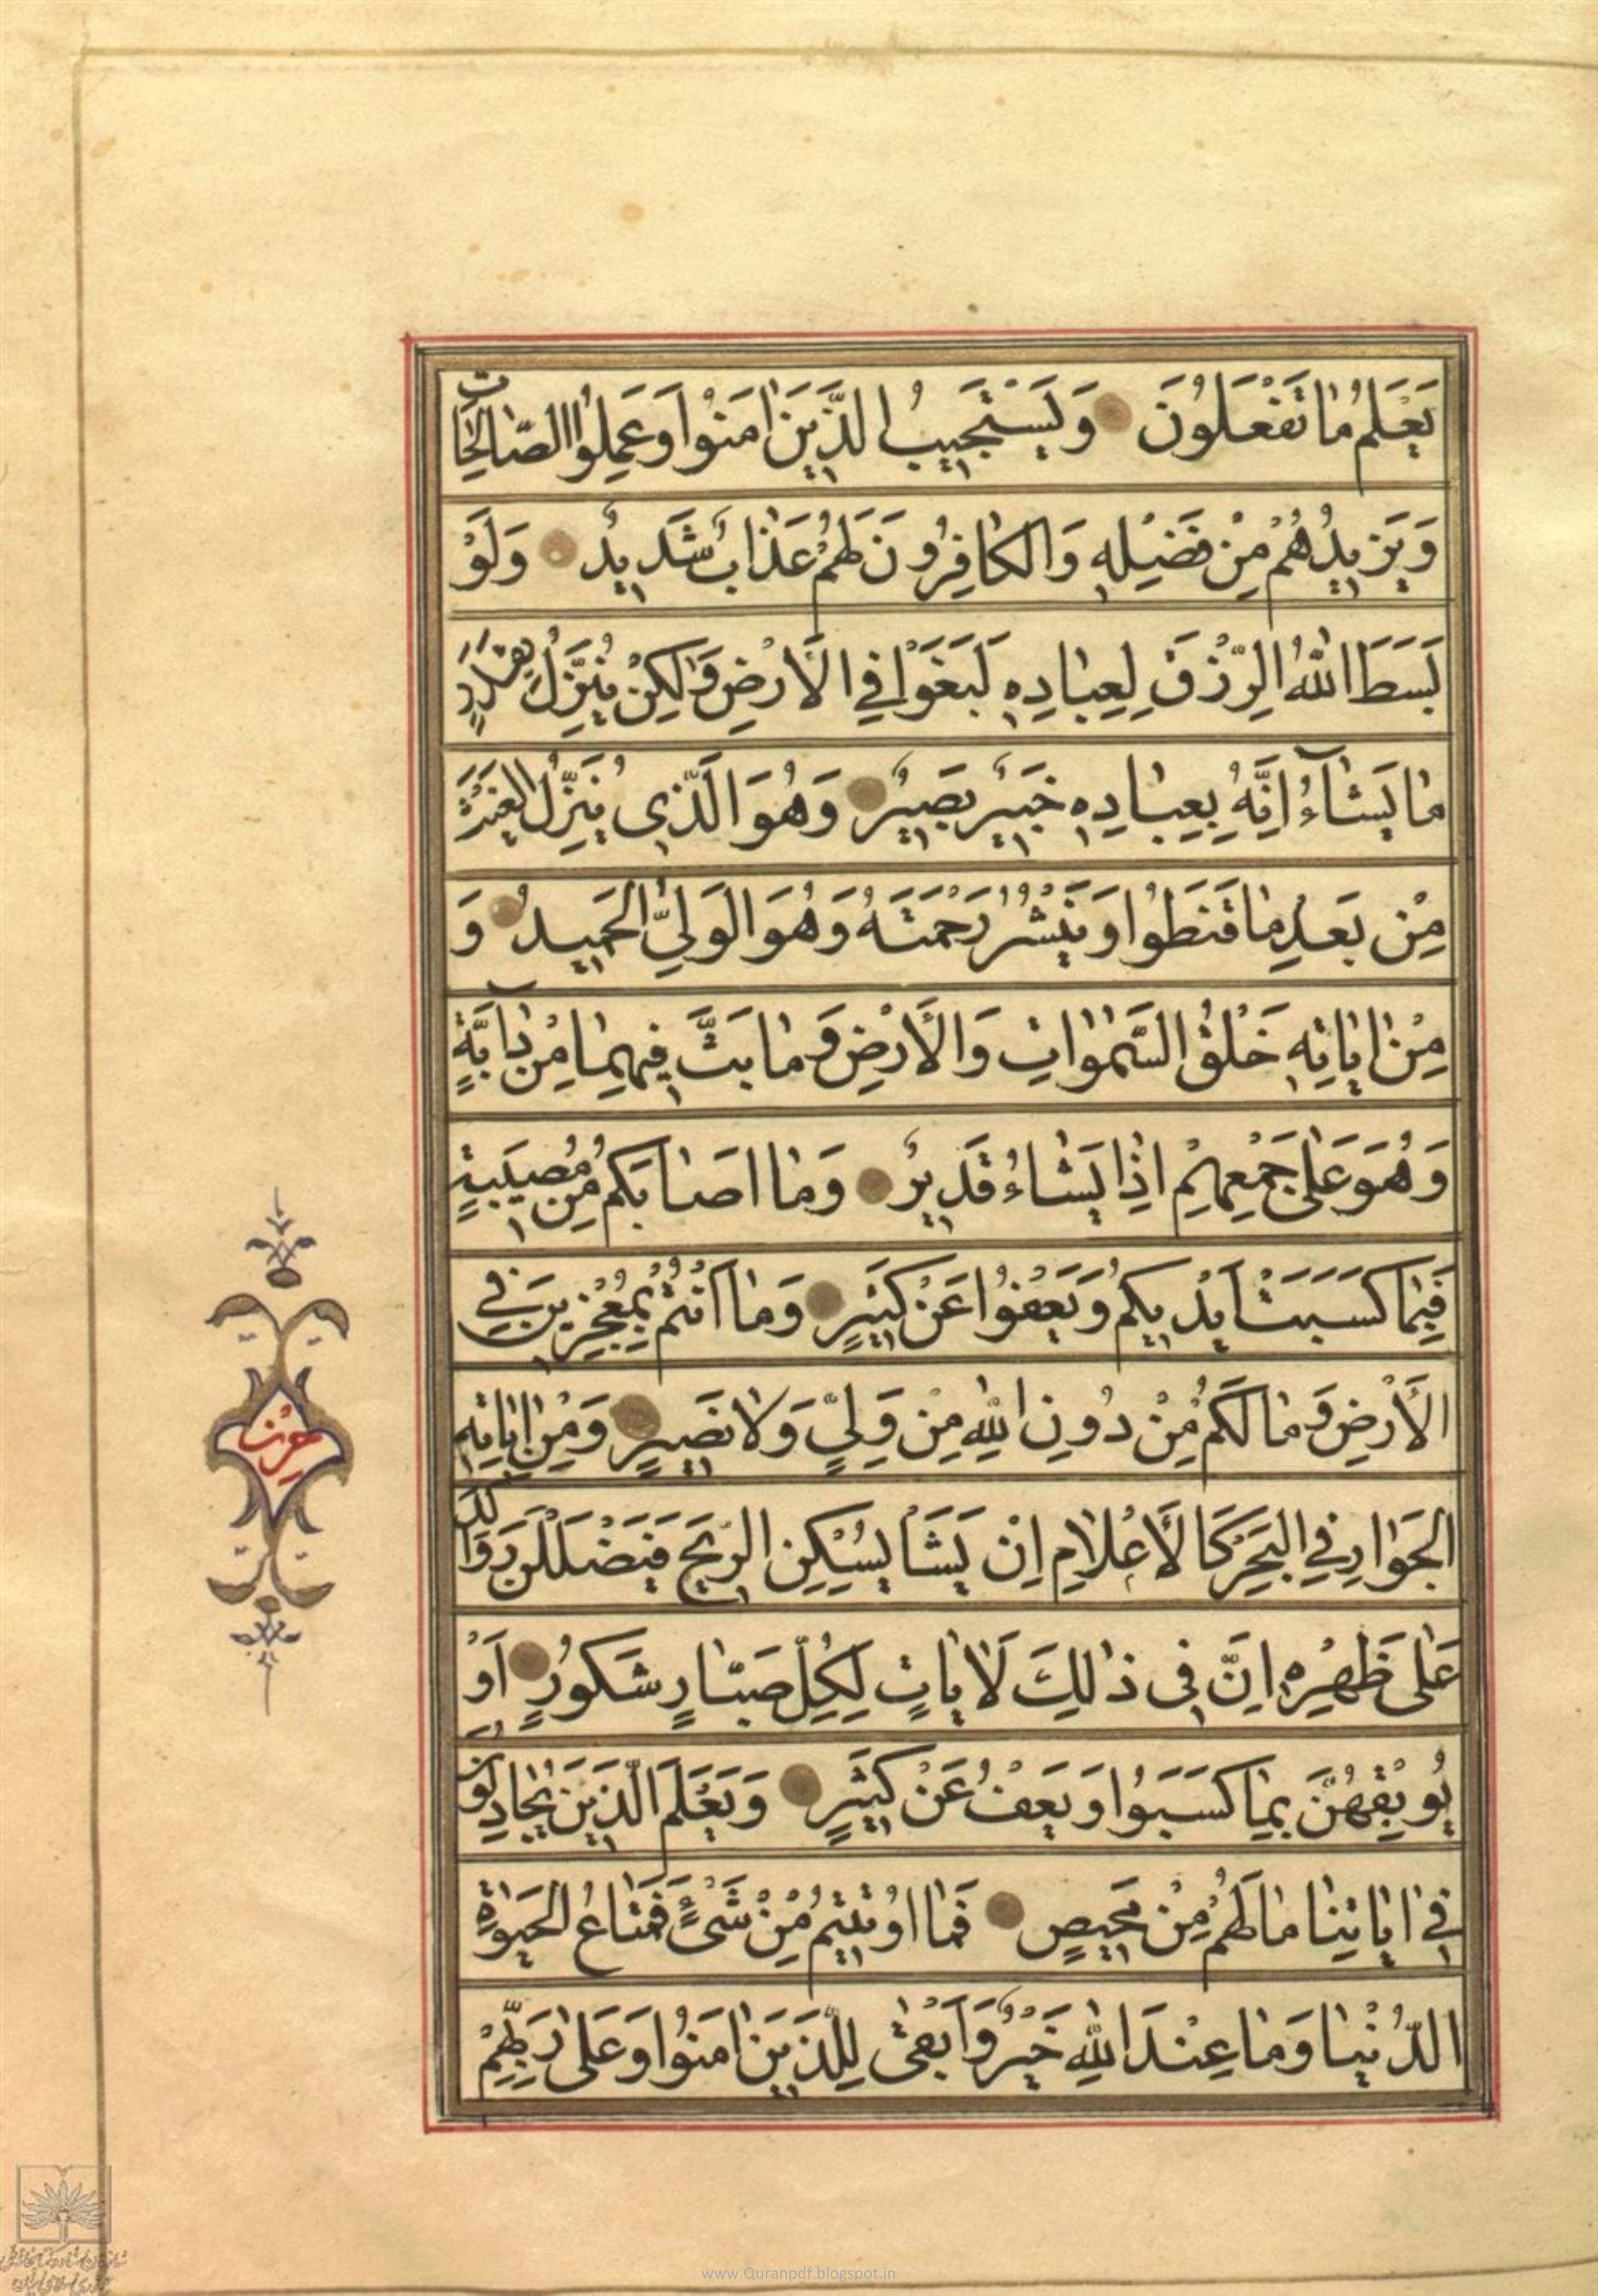 يَعْلَمُ مٰا تَفْعَلُونَ وَيَسْتَجيبُ الَّذينَ اٰمَنُوا وَعَمِلُوا الصّٰالِحٰاتِ
وَيَزيدُهُمْ مِنْ فَضْلِهِ وَالْكٰافِرُونَ لَهُمْ عَذٰابٌ شَديدٌ وَلَوْ
بَسَطَ اللّٰهُ الرِّزْقَ لِعِبٰادِهِ لَبَغَوْا فِي الْاَرْضِ وَلٰكِنْ يُنَزِّلُ بِقَدَرٍ
مٰا يَشٰآءُ اِنَّهُ بِعِبٰادِهِ خَبيرٌ بَصيرٌ وَهُوَ الَّذي يُنَزِّلُ الْغَيْثَ
مِنْ بَعْدِ مٰا قَنَطُوا وَيَنْشُرُ رَحْمَتَهُ وَهُوَ الْوَلِيُّ الْحَميدُ وَ
مِنْ اٰيٰاتِهِ خَلْقُ السَّمٰوٰاتِ وَالْاَرْضِ وَمٰا بَثَّ فيهِمٰا مِنْ دٰآبَّةٍ
وَهُوَ عَلٰى جَمْعِهِمْ اِذٰا يَشٰاءُ قَديرٌ وَمٰا اَصٰابَكُمْ مِنْ مُصيبَةٍ
فَبِمٰا كَسَبَتْ اَيْديكُمْ وَيَعْفُوا عَنْ كَثيرٍ وَمٰا اَنْتُمْ بِمُعْجِزينَ فِي
الْاَرْضِ وَمٰا لَكُمْ مِنْ دُونِ اللّٰهِ مِنْ وَلِيٍّ وَلٰا نَصيرٍ وَمِنْ اٰيٰاتِهِ
الْجَوٰارِ فِي الْبَحْرِ كَالْاَعْلٰامِ اِنْ يَشَأْ يُسْكِنِ الرّيحَ فَيَظْلَلْنَ رَوٰاكِدَ
عَلٰى ظَهْرِهِ اِنَّ في ذٰلِكَ لَاٰيٰاتٍ لِكُلِّ صَبّٰارٍ شَكُورٍ اَوْ
يُوبِقْهُنَّ بِمٰا كَسَبُوا وَيَعْفُ عَنْ كَثيرٍ وَيَعْلَمَ الَّذينَ يُجٰادِلُونَ
في اٰيٰاتِنٰا مٰا لَهُمْ مِنْ مَحيصٍ فَمٰا اُوتيتُمْ مِنْ شَيْءٍ فَمَتٰاعُ الْحَيٰوةِ
الدُّنْيٰا وَمٰا عِنْدَ اللّٰهِ خَيْرٌ وَاَبْقٰى لِلَّذينَ اٰمَنُوا وَعَلٰى رَبِّهِمْ
حزب
www.Quranpdf.blogspot.in